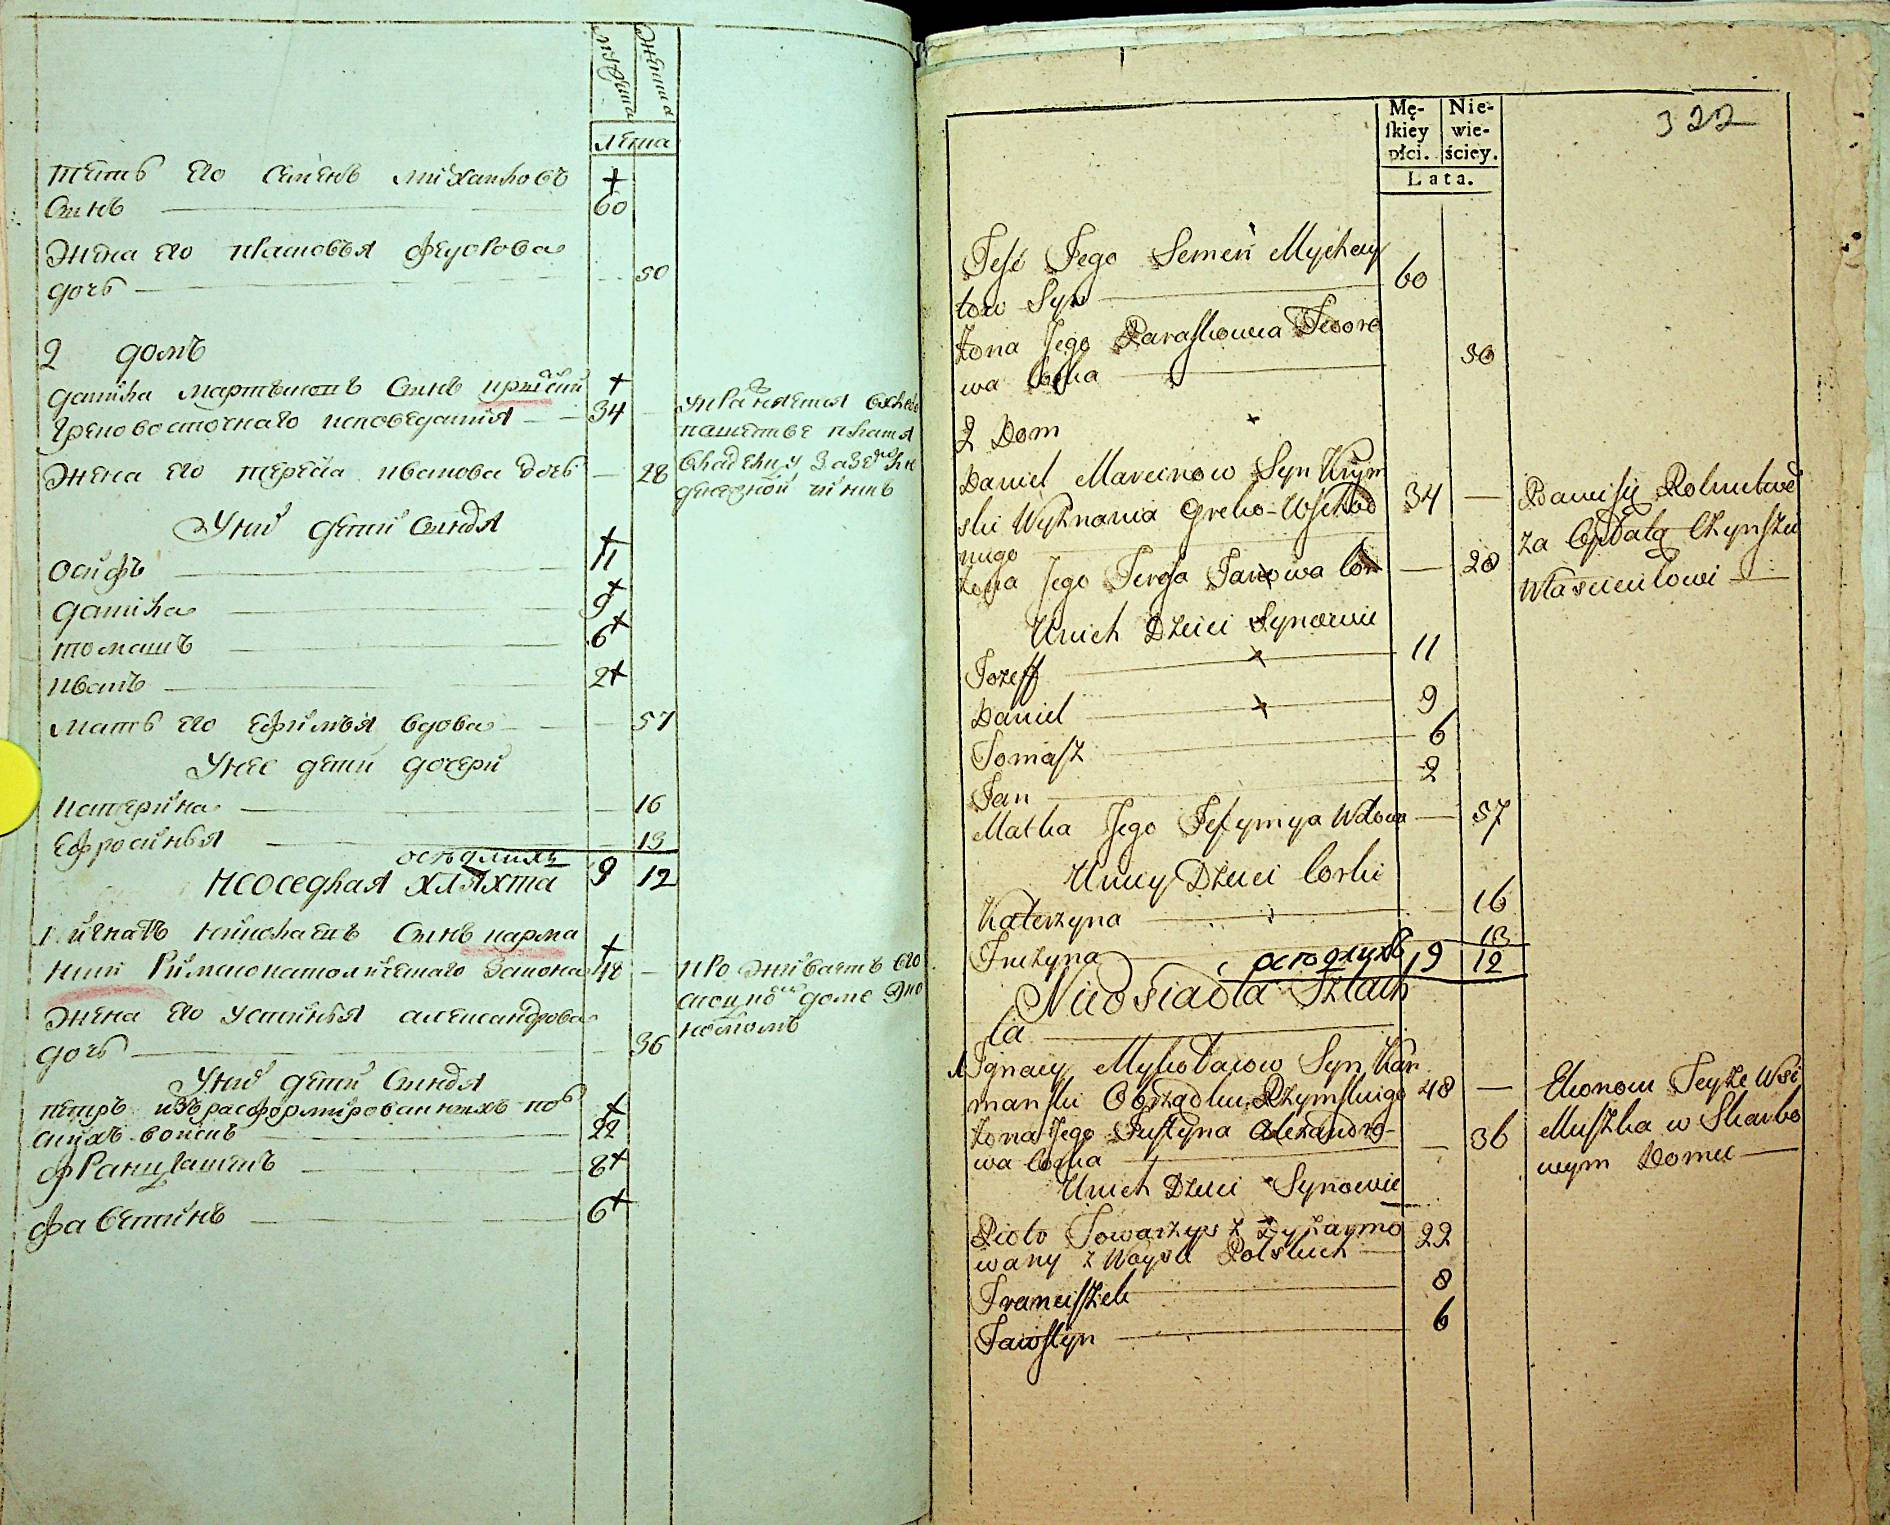 мужеска
женска
лѣта
тесть его семенъ михайловъ +
сынъ 60
жена его прасковья федорова
дочь 50
2 домъ
данила мартыновъ сынъ крымскій +
грековосточнаго исповеданія 34
жена его тереса иванова дочь 28
унихъ дети сындя
осифъ 11 +
данила 9 +
томашъ 6 +
иванъ 2 +
мать его ефимья вдова 57
унее дети дочери
катерина 16
ефросинья 13
оседлихъ
неоседлая хляхта 9 12
1 игнатъ николаевъ сынъ карма +
нскии римскокатолическаго закона 48
жена его устинья александрова
дочь 36
унихъ дети сындя
петръ изърасформированныхъ поль +
скихъ войскъ 22
францишекъ 8 +
фавстинъ 6 +
упражняется вхлебо
пашестве платя
владелцу
денежной чиншъ
проживаетъ въ
скарбо домѣ эко
номомъ
322
Mę-
skiey
płci.
Nie-
wie-
ściey.
Lata.
Teść Jego Semen Mychay
łow Syn 60
Żona Jego Paraskowia Fedoro
wa Corka 50
2 Dom
Daniel Marcinow Syn Krym
ski Wyznania Greko-Wschod 34 —
niego
Żona Jego Teresa Janowa Cor — 28
Unich Dzieci Synowie
Jozeff 11
Daniel 9
Tomasz 6
Jan 2
Matka Jego Jefymya Wdowa — 57
Uniey Dzieci Corki
Katerzyna 16
Fruzyna 13
оседлихъ 9 12
Nieosiadła Szlach
ta
1 Ignacy Mykołaiow Syn Kar
manski Obrządku Rzymskiego 48 —
Żona Jego Justyna Alexandro-
wa Corka — 36
Unich Dzieci Synowie
Piotr Towarzysz Zdyzarmo
wany z Woysk Polskich 22
Franciszek 8
Fawstyn 6
Bawi się Rolnictwe
za Opłatą Czynszu
Właścicielowi
Ekonom Teyże Wsi
Muszka w Skarbo
wym Domie